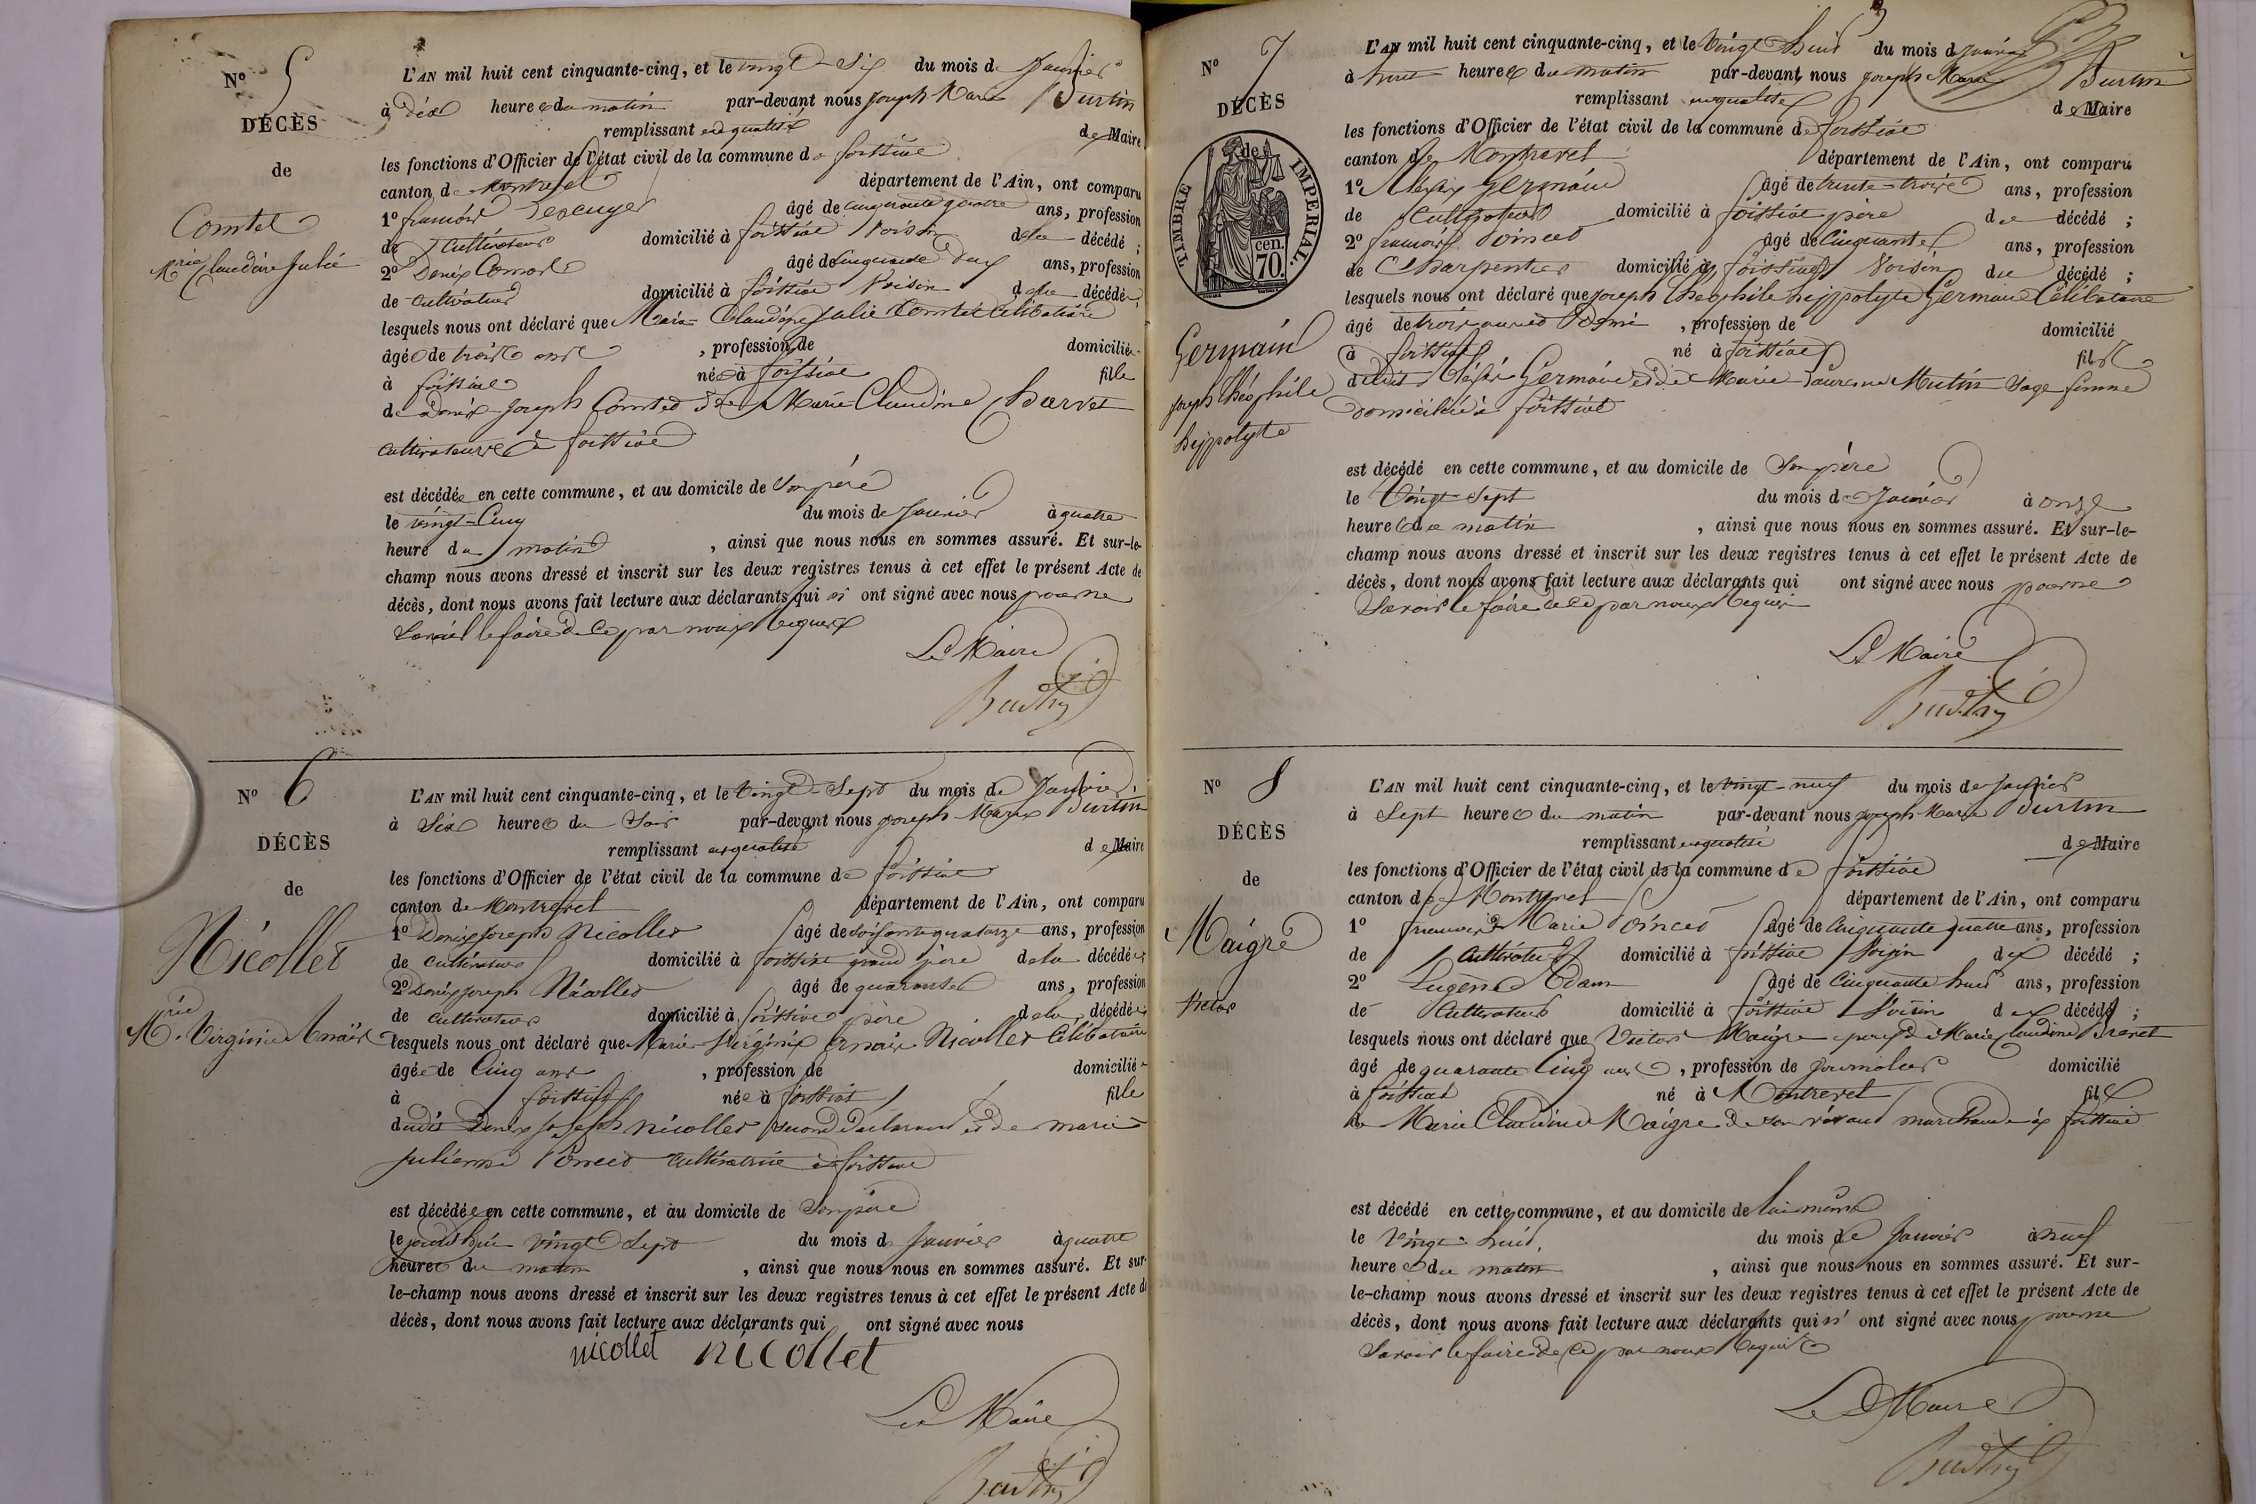 N° 5
DÉCÈS
de
Comtet
Mrie Claudine Julie
L'AN mil huit cent cinquante-cinq, et le vingt-six du mois de Janvier
à dix heures du matin par-devant nous joseph Marie Burtin
remplissant en qualité de Maire
les fonctions d'Officier de l'état civil de la commune de foissiat
canton de Montrevel département de l'Ain, ont comparu
1° francois âgé de cinquante quatre ans, profession
de Cultivateur domicilié à foissiat Voisin de la décédé ;
2° Denis âgé de cinquante deux ans, profession
de cultivateur domicilié à foissiat Voisin de la décédée ;
lesquels nous ont déclaré que Marie Claudine Julie Comtet Célibataire
âgée de trois ans , profession de domiciliée
à foissiat née à foissiat fille
de Denis joseph Comtet et de Marie Claudine Charvet
cultivateurs à foissiat
est décédée en cette commune, et au domicile de Son père
le vingt-Cinq du mois de Janvier à quatre
heure du matin , ainsi que nous nous en sommes assuré. Et sur-le-
champ nous avons dressé et inscrit sur les deux registres tenus à cet effet le présent Acte de
décès, dont nous avons fait lecture aux déclarants qui n' ont signé avec nous pour ne
Savoir le faire de ce par nous Requis
Le Maire
Burtin
N° 6
DÉCÈS
de
Nicollet
Mrie Virginie Anaïs
L'AN mil huit cent cinquante-cinq, et le vingt-Sept du mois de Janvier
à Six heures du Soir par-devant nous joseph Marie Burtin
remplissant en qualité de Maire
les fonctions d'Officier de l'état civil de la commune de foissiat
canton de Montrevel département de l'Ain, ont comparu
1° Denis joseph Nicollet âgé de soixante quatorze ans, profession
de cultivateur domicilié à foissiat grand père de la décédée
2° Denis joseph Nicollet âgé de quarante ans, profession
de cultivateur domicilié à foissiat père de la décédée
lesquels nous ont déclaré que Marie Virginie Anaïs Nicollet Célibataire
âgée de Cinq ans , profession de domiciliée
à foissiat née à foissiat fille
dudit Denis joseph Nicollet second déclarant et de marie
julienne Poncet cultivatrice à foissiat
est décédée en cette commune, et au domicile de Son père
le jourd'hui vingt Sept du mois de Janvier à quatre
heures du matin , ainsi que nous nous en sommes assuré. Et sur-
le-champ nous avons dressé et inscrit sur les deux registres tenus à cet effet le présent Acte de
décès, dont nous avons fait lecture aux déclarants qui ont signé avec nous
nicollet nicollet
Le Maire
Burtin
N° 7
DÉCÈS
de
TIMBRE IMPERIAL.
70. cen.
Germain
joseph théophile
hyppolyte
L'AN mil huit cent cinquante-cinq, et le vingt huit du mois de janvier
à huit heures du matin par-devant nous joseph Marie Burtin
remplissant en qualité de Maire
les fonctions d'Officier de l'état civil de la commune de foissiat
canton de Montrevel département de l'Ain, ont comparu
1° Alexis Germain âgé de trente-trois ans, profession
de Cultivateur domicilié à foissiat père du décédé ;
2° francois Poncet âgé de Cinquante ans, profession
de Charpentier domicilié à foissiat Voisin du décédé ;
lesquels nous ont déclaré que joseph théophile hyppolyte Germain Célibataire
âgé de trois ans et Demi , profession de domicilié
à foissiat né à foissiat fils
dudit Alexis Germain et de Marie Laurence Mutin Sage femme
domiciliée à foissiat
est décédé en cette commune, et au domicile de Son père
le Vingt-Sept du mois de Janvier à onze
heures du matin , ainsi que nous nous en sommes assuré. Et sur-le-
champ nous avons dressé et inscrit sur les deux registres tenus à cet effet le présent Acte de
décès, dont nous avons fait lecture aux déclarants qui ont signé avec nous pour ne
Savoir le faire de ce par nous Requis
Le Maire
Burtin
N° 8
DÉCÈS
de
Maigre
Victor
L'AN mil huit cent cinquante-cinq, et le vingt-neuf du mois de Janvier
à Sept heures du matin par-devant nous joseph Marie Burtin
remplissant en qualité de Maire
les fonctions d'Officier de l'état civil de la commune de foissiat
canton de Montrevel département de l'Ain, ont comparu
1° francois Marie Poncet âgé de Cinquante quatre ans, profession
de Cultivateur domicilié à foissiat Voisin du décédé ;
2° Eugène Adam âgé de Cinquante huit ans, profession
de Cultivateur domicilié à foissiat Voisin du décédé ;
lesquels nous ont déclaré que Victor Maigre époux de Marie Claudine Brevet
âgé de quarante Cinq ans , profession de journalier domicilié
à foissiat né à Montrevel fils
de Marie Claudine Maigre de son vivant marchande à foissiat
est décédé en cette commune, et au domicile de lui même
le Vingt-huit du mois de Janvier à neuf
heures du matin , ainsi que nous nous en sommes assuré. Et sur-
le-champ nous avons dressé et inscrit sur les deux registres tenus à cet effet le présent Acte de
décès, dont nous avons fait lecture aux déclarants qui n' ont signé avec nous pour ne
Savoir le faire de ce par nous Requis
Le Maire
Burtin